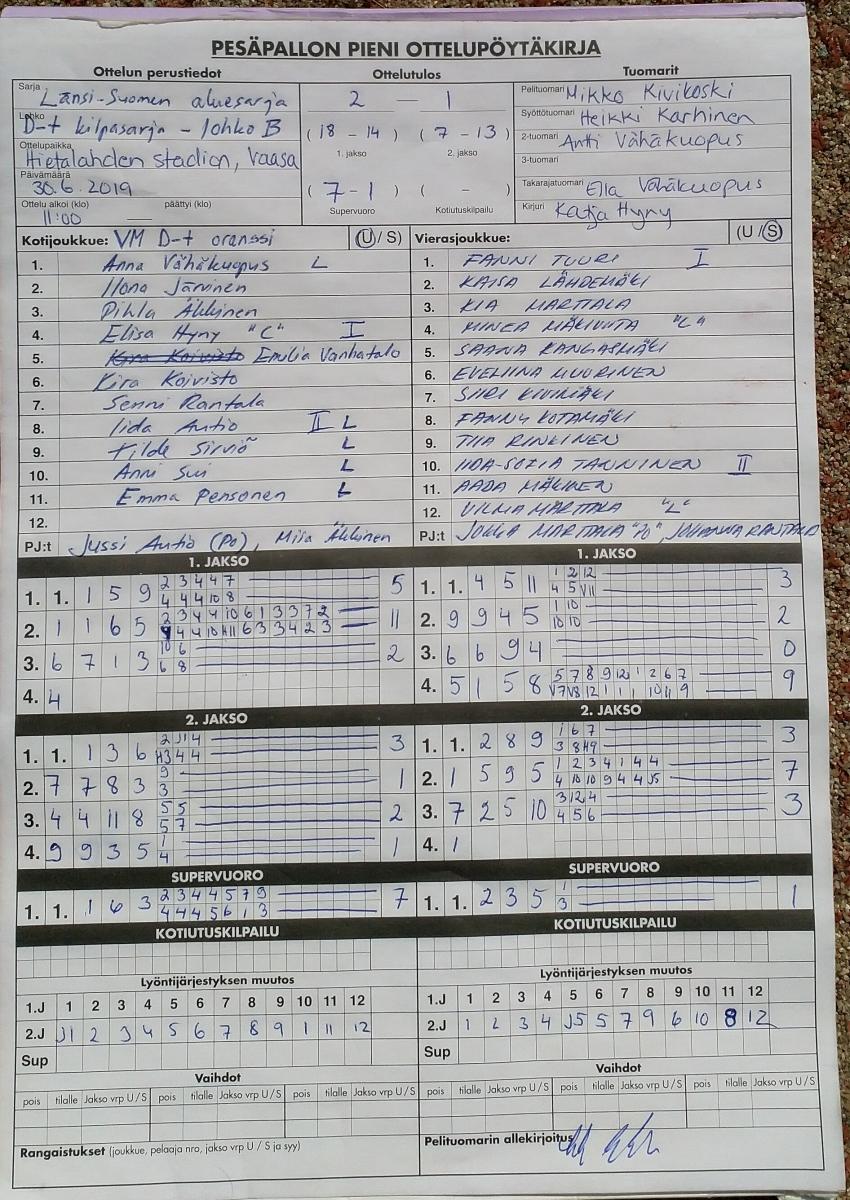 PESÄPALLON PIENI OTTELUPÖYTÄKIRJA
Ottelun perustiedot
Ottelutulos
Tuomarit
Sarja Länsi-Suomen aluesarja
Lohko D-t kilpasarja - lohko B
Ottelupaikka Hietalahden stadion, Vaasa
Päivämäärä 30.6.2019
Ottelu alkoi (klo) päättyi (klo)
11:00 —
2 — 1
(18 - 14) (7 - 13)
1. jakso 2. jakso
(7 - 1) ( - )
Supervuoro Kotiutuskilpailu
Pelituomari Mikko Kivikoski
Syöttötuomari Heikki Karhinen
2-tuomari Antti Vähäkuopus
3-tuomari
Takarajatuomari Ella Vähäkuopus
Kirjuri Katja Hyny
Kotijoukkue: VM D-t oranssi (U / S)
1. Anna Vähäkuopus L
2. Ilona Järvinen
3. Pihla Äkkinen
4. Elisa Hyny "C" I
5. Kira Koivisto Emilia Vanhatalo
6. Kira Koivisto
7. Senni Rantala
8. Iida Autio II L
9. Tilde Sirviö L
10. Anni Sui L
11. Emma Pensonen L
12.
PJ:t Jussi Autio (Po), Miia Äkkinen
Vierasjoukkue: (U / S)
1. FANNI TUURI I
2. KAISA LÄHDEMÄKI
3. KIA MARTTALA
4. MINEA "C"
5. SAANA KANGASMÄKI
6. EVELIINA MUURINEN
7. SIIRI KIVIMÄKI
8. FANNY KOTAMÄKI
9. TIIA RINKINEN
10. IIDA-SOFIA TANNINEN II
11. AADA MÄKINEN
12. VILMA MARTTALA "L"
PJ:t JUKKA MARTTALA "PO", JOHANNA RANTALA
1. JAKSO
1. 1. 1 5 9 2 3 4 4 7 5
4 4 4 10 8
2. 1 1 6 5 2 3 4 4 10 6 1 3 3 7 2 11
4 4 10 11 6 3 3 4 2 3
3. 6 7 1 3 10 6 2
6 8
4. 4
2. JAKSO
1. 1. 1 3 6 2 J1 4 3
H3 4 4
2. 7 7 8 3 9 1
3
3. 4 4 11 8 5 5 2
5 7
4. 9 9 3 5 1 1
4
SUPERVUORO
1. 1. 1 6 3 2 3 4 4 5 7 9 7
4 4 4 5 6 1 3
KOTIUTUSKILPAILU
Lyöntijärjestyksen muutos
1.J 1 2 3 4 5 6 7 8 9 10 11 12
2.J J1 2 3 4 5 6 7 8 9 1 11 12
Sup
Vaihdot
pois tilalle Jakso vrp U / S pois tilalle Jakso vrp U / S pois tilalle Jakso vrp U / S
Rangaistukset (joukkue, pelaaja nro, jakso vrp U / S ja syy)
1. JAKSO
1. 1. 4 5 11 1 2 12 3
4 5 V11
2. 9 9 4 5 1 10 2
10 10
3. 6 6 9 4 0
4. 5 1 5 8 5 7 8 9 12 1 2 6 7 9
V7 V8 12 1 1 1 10 11 9
2. JAKSO
1. 1. 2 8 9 1 6 7 3
3 8 H9
2. 1 5 9 5 1 2 3 4 1 4 4 7
4 10 10 9 4 4 J5
3. 7 2 5 10 3 12 4 3
4 5 6
4. 1
SUPERVUORO
1. 1. 2 3 5 1 1
3
KOTIUTUSKILPAILU
Lyöntijärjestyksen muutos
1.J 1 2 3 4 5 6 7 8 9 10 11 12
2.J 1 2 3 4 J5 5 7 9 6 10 8 12
Sup
Vaihdot
pois tilalle Jakso vrp U / S pois tilalle Jakso vrp U / S pois tilalle Jakso vrp U / S
Pelituomarin allekirjoitus